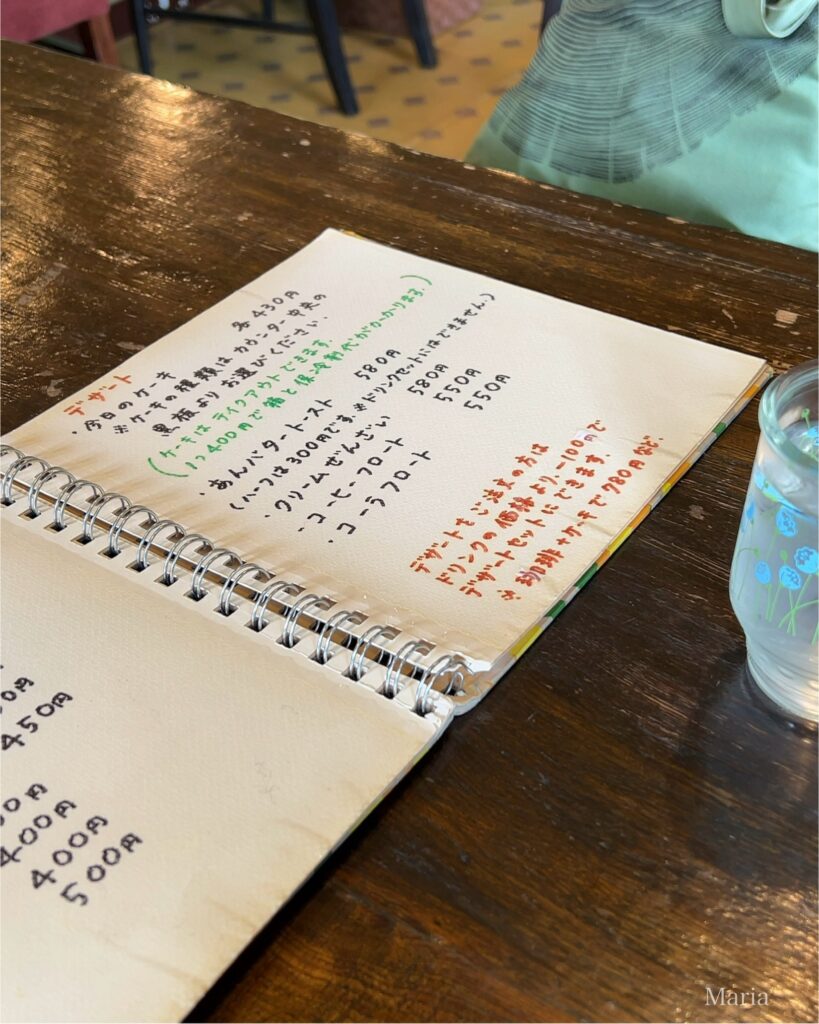 デザート
・今日のケーキ 各430円
※ケーキの種類は、カウンター中央の
黒板よりお選びください。
(ケーキはテイクアウトできます。
1つ400円で箱と保冷剤代がかかります。)
・あんバタートースト 580円
(ハーフは300円です。※ドリンクセットにはできません。)
・クリームぜんざい 580円
・コーヒーフロート 550円
・コーラフロート 550円
デザートをご注文の方は
ドリンクの価格より、-100円で
デザートセットにできます。
※珈琲+ケーキで780円など。
450円
400円
400円
500円
Maria